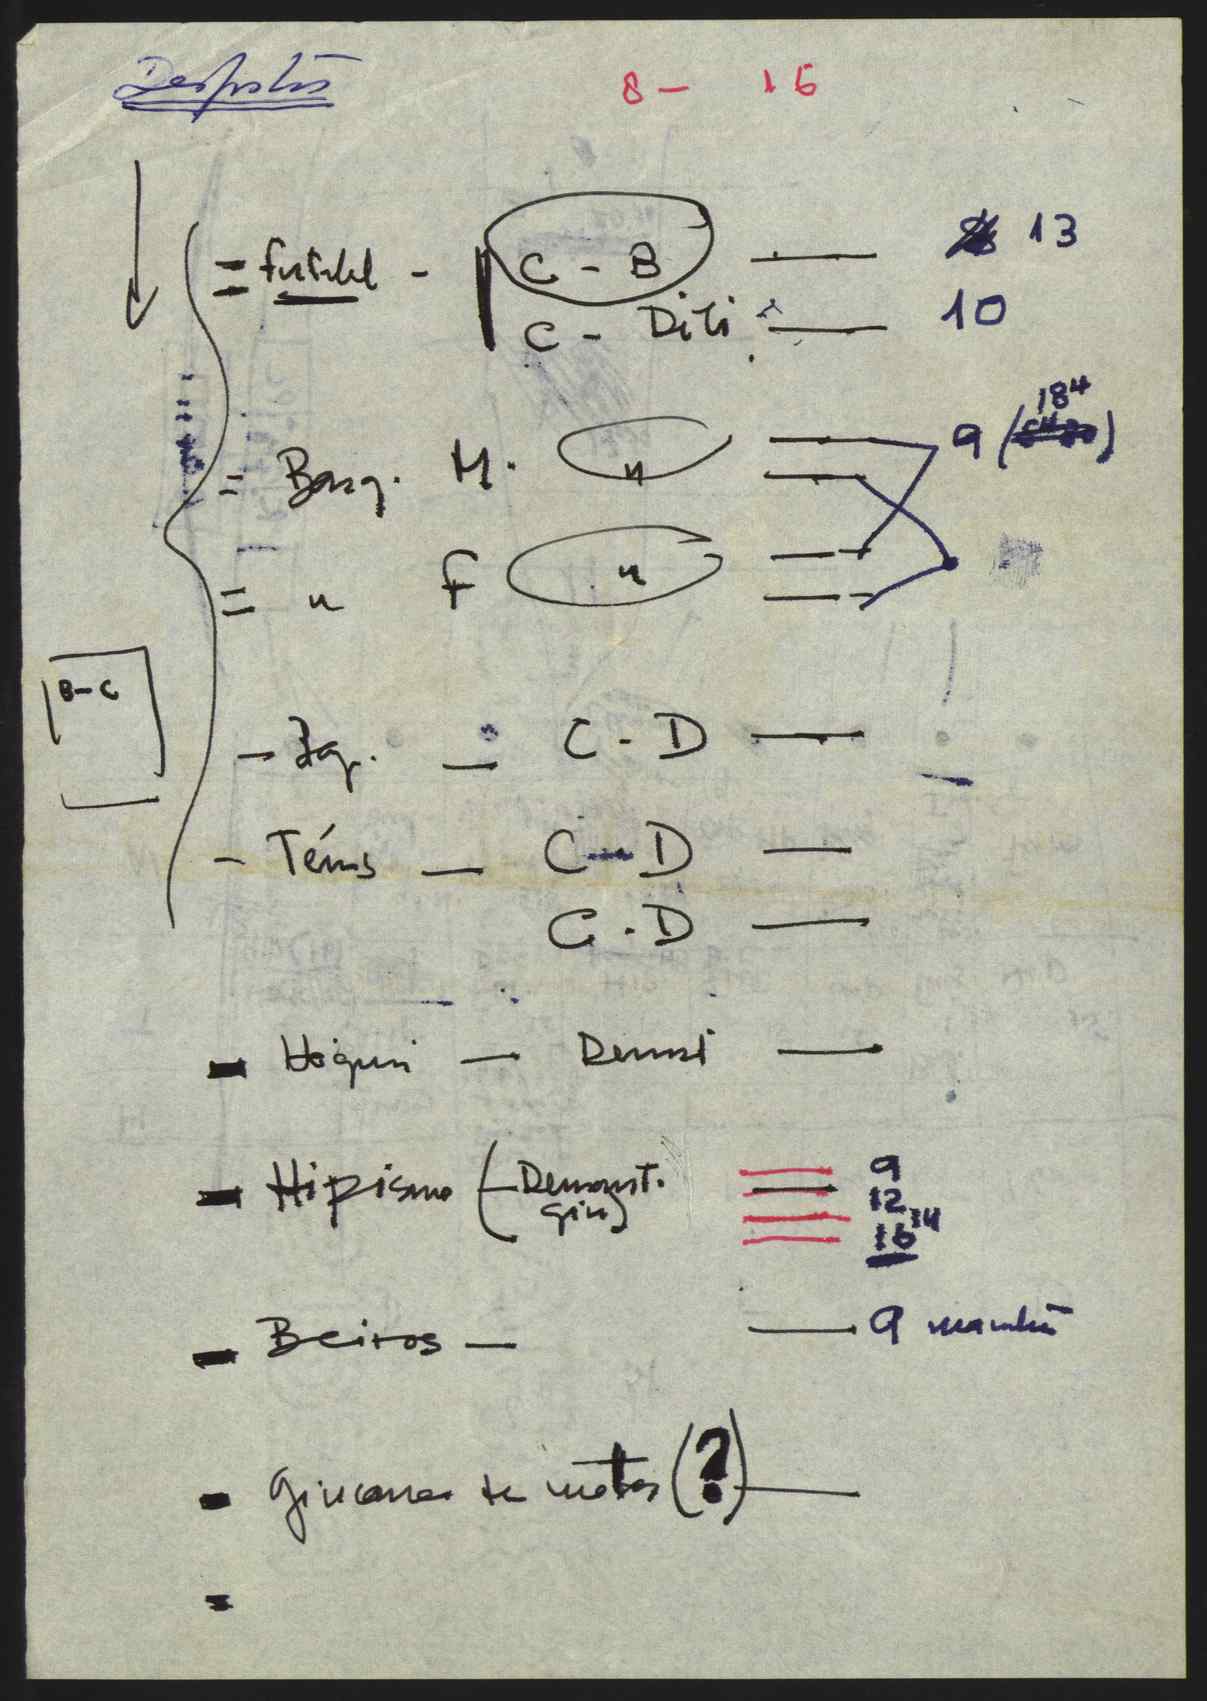 Desportos 8 - 16
= futebol - C - B — 13
C - Dili — 10
= Basq. M. " — 9 (184)
= " F "
B - C
- C - D —
- Ténis — C - D —
C - D —
- Hóquei — Demost —
- Hipismo (- Demonst. 9
gin) 12
14
16
- Beiros — — 9 manhã
- Gincana de motos (?) —
-